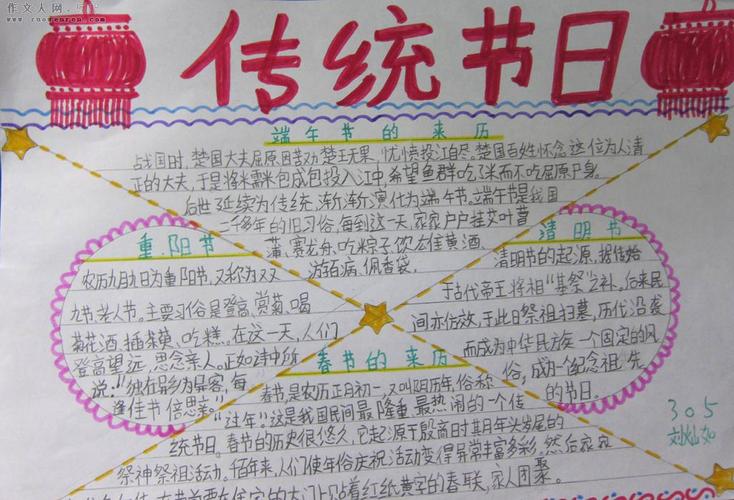 作文人网
www.zuowenren.com
传统节日
端午节的来历
战国时,楚国大夫屈原因苦劝楚王无果,忧愤投江自尽。楚国百姓怀念这位为人清
正的大夫,于是将糯米包成包投入江中,希望鱼群吃了米而不吃屈原尸身。
后世延续为传统,渐渐演化为端午节。端午节是我国
二千多年的旧习俗,每到这一天,家家户户挂艾叶菖
蒲、赛龙舟、吃粽子、饮雄黄酒、
游百病,佩香袋。
重阳节
农历九月九日为重阳节,又称为双
九节、老人节。主要习俗是登高、赏菊、喝
菊花酒、插茱萸、吃糕。在这一天,人们
登高望远,思念亲人。正如诗中所
说:“独在异乡为异客,每
逢佳节倍思亲。”
清明节
清明节的起源,据传始
于古代帝王将相“墓祭”之礼,后来民
间亦仿效,于此日祭祖扫墓,历代沿袭
而成为中华民族一个固定的风
俗,成为一个纪念祖先
的节日。
春节的来历
春节,是农历正月初一,又叫阴历年,俗称
“过年”。这是我国民间最隆重、最热闹的一个传
统节日。春节的历史很悠久,它起源于殷商时期年头岁尾的
祭神祭祖活动。百年来,人们使年俗庆祝活动变得异常丰富多彩,然后家家
门上贴着红纸黄字的春联,家人团聚。
305